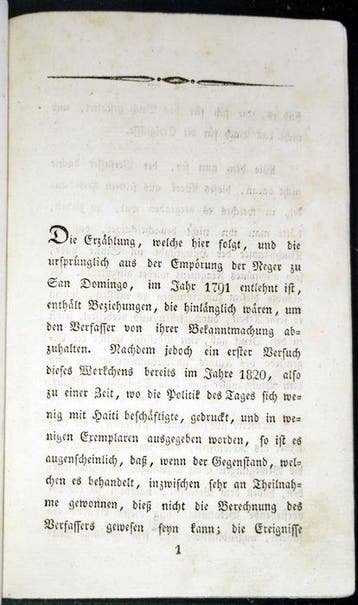 Die Erzählung, welche hier folgt, und die
ursprünglich aus der Empörung der Neger zu
San Domingo, im Jahr 1791 entlehnt ist,
enthält Beziehungen, die hinlänglich wären, um
den Verfasser von ihrer Bekanntmachung ab-
zuhalten. Nachdem jedoch ein erster Versuch
dieses Werkchens bereits im Jahre 1820, also
zu einer Zeit, wo die Politik des Tages sich we-
nig mit Haiti beschäftigte, gedruckt, und in we-
nigen Exemplaren ausgegeben worden, so ist es
augenscheinlich, daß, wenn der Gegenstand, wel-
chen es behandelt, inzwischen sehr an Theilnah-
me gewonnen, dieß nicht die Berechnung des
Verfassers gewesen seyn kann; die Ereignisse
1